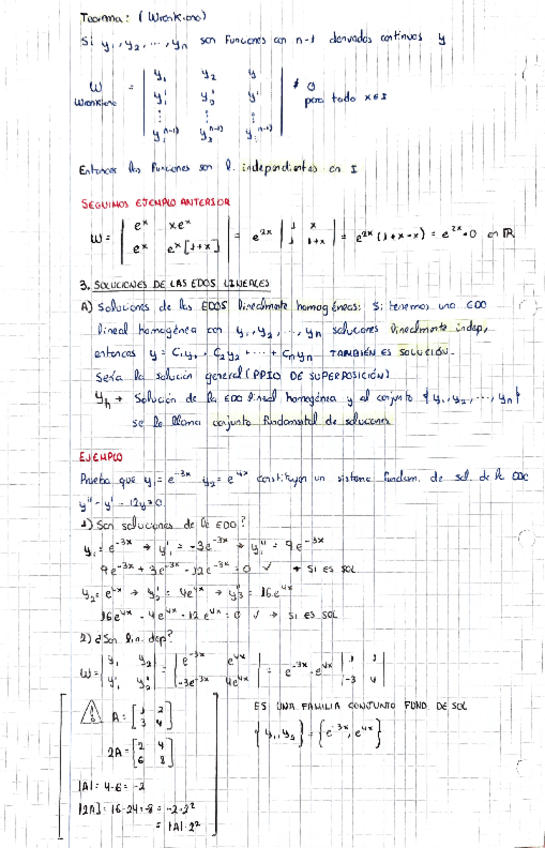 Teorema: (Wronkiano)
Si y₁, y₂, ..., yₙ son funciones con n-1 derivadas continuas y
W = | y₁ y₂ y | ≠ 0
Wronkiano | y₁' y₂' y' | para todo x∈I
| ⋮ ⋮ ⋮ |
| y₁ⁿ⁻¹⁾ y₂ⁿ⁻¹⁾ y ⁿ⁻¹⁾ |
Entonces las funciones son l. independientes en I
SEGUIMOS EJEMPLO ANTERIOR
W = | eˣ xeˣ | = e²ˣ | 1 x | = e²ˣ (1+x-x) = e²ˣ ≠ 0 en ℝ
| eˣ eˣ[1+x] | | 1 1+x |
3. SOLUCIONES DE LAS EDOS LINEALES
A) Soluciones de las EDOS linealmente homogéneas: Si tenemos una EDO
lineal homogénea con y₁, y₂, ..., yₙ soluciones linealmente indep,
entonces y = C₁y₁ + C₂y₂ + ... + Cₙyₙ TAMBIÉN ES SOLUCIÓN.
Sería la solución general (PPIO DE SUPERPOSICIÓN)
yₕ → Solución de la EDO lineal homogénea y al conjunto {y₁, y₂, ..., yₙ}
se le llama conjunto fundamental de soluciones
EJEMPLO
Prueba que y₁ = e⁻³ˣ y₂ = e⁴ˣ constituyen un sistema fundam. de sol. de la EDO
y'' - y' - 12y = 0.
1) Son soluciones de la EDO?
y₁ = e⁻³ˣ → y₁' = -3e⁻³ˣ → y₁'' = 9e⁻³ˣ
9e⁻³ˣ + 3e⁻³ˣ - 12e⁻³ˣ = 0 ✓ → Si es SOL
y₂ = e⁴ˣ → y₂' = 4e⁴ˣ → y₂'' = 16e⁴ˣ
16e⁴ˣ - 4e⁴ˣ - 12e⁴ˣ = 0 ✓ → SI ES SOL
2) ¿Son lin. dep?
W = | y₁ y₂ | = | e⁻³ˣ e⁴ˣ | = e⁻³ˣ · e⁴ˣ | 1 1 |
| y₁' y₂' | | -3e⁻³ˣ 4e⁴ˣ | | -3 4 |
⚠ A = [1 2
3 4]
2A = [2 4
6 8]
|A| = 4-6 = -2
|2A| = 16-24 = -8 = -2·2²
= |A|·2²
ES UNA FAMILIA CONJUNTO FUND. DE SOL
{y₁, y₂} = {e⁻³ˣ, e⁴ˣ}